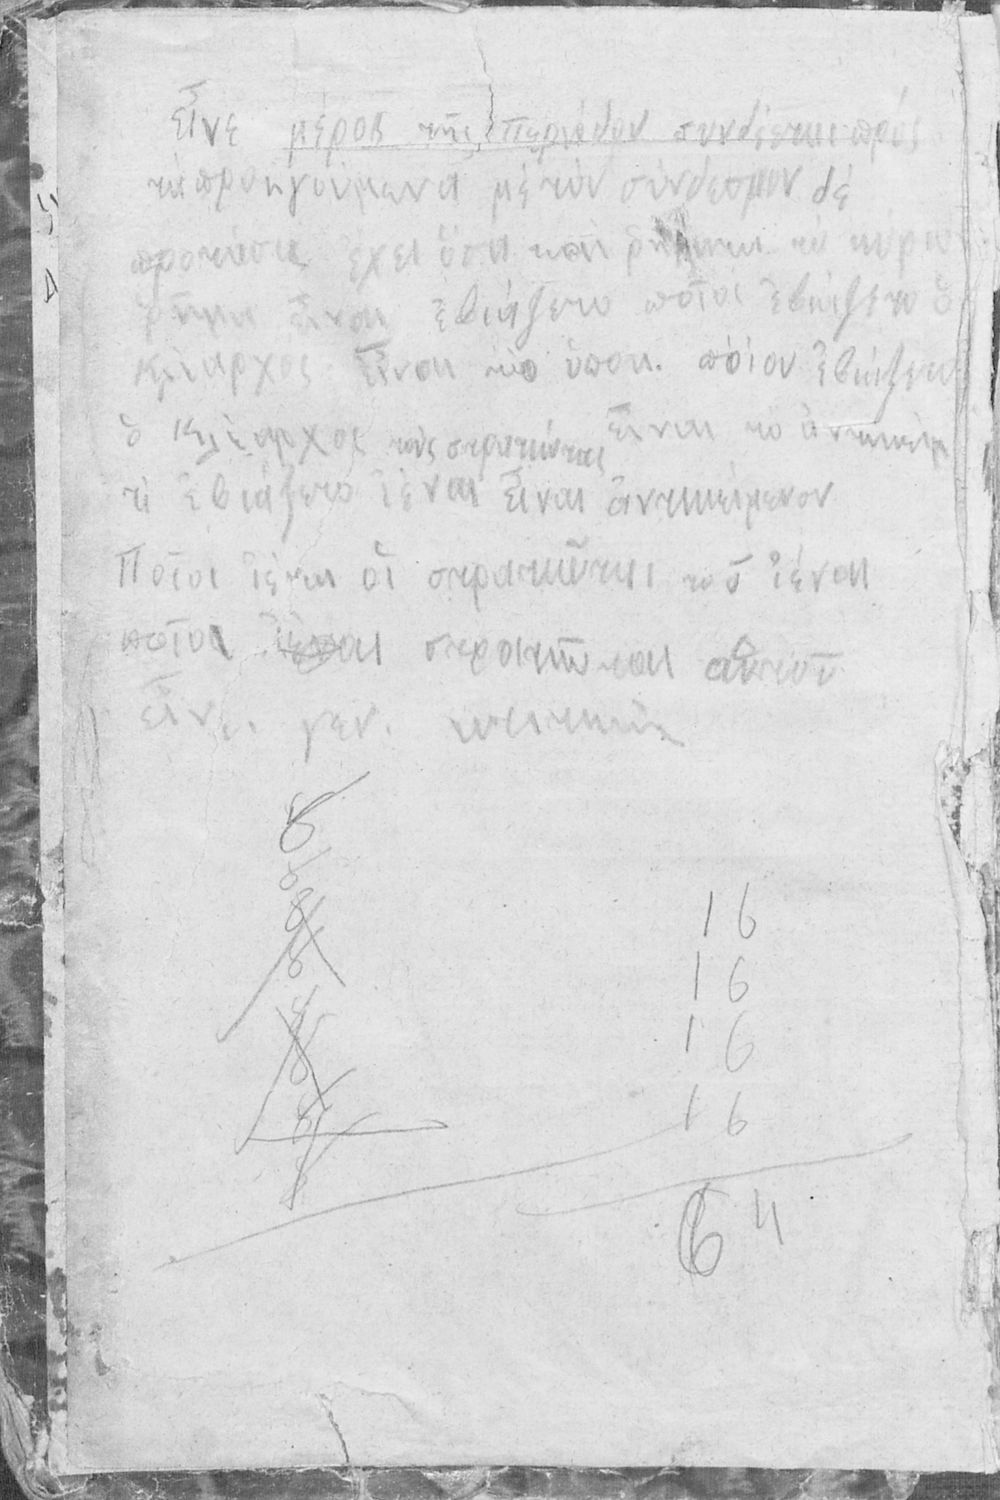 εἶνε μέρος τῆς περιόδου συνδέεται πρός
τὰ προηγούμενα μέ τὸν σύνδεσμον δέ
προτάσεις ἔχει ὅσα καὶ ῥήματα τὸ κύριο
ῥῆμα εἶναι ἐβιάζετο ποῖος ἐβιάζετο ὁ
Κλέαρχος εἶναι τὸ ὑποκ. ποίον ἐβιάζετο
ὁ Κλέαρχος τοὺς στρατιώτας εἶναι τὸ ἀντικείμ
τί ἐβιάζετο ἰέναι εἶναι ἀντικείμενον
Ποῖοι ἰέναι οἱ στρατιῶται τοῦ ἰέναι
ποῖοι στρατιῶται αὐτοῦ
εἶνε. γεν.
16
16
16
16
64